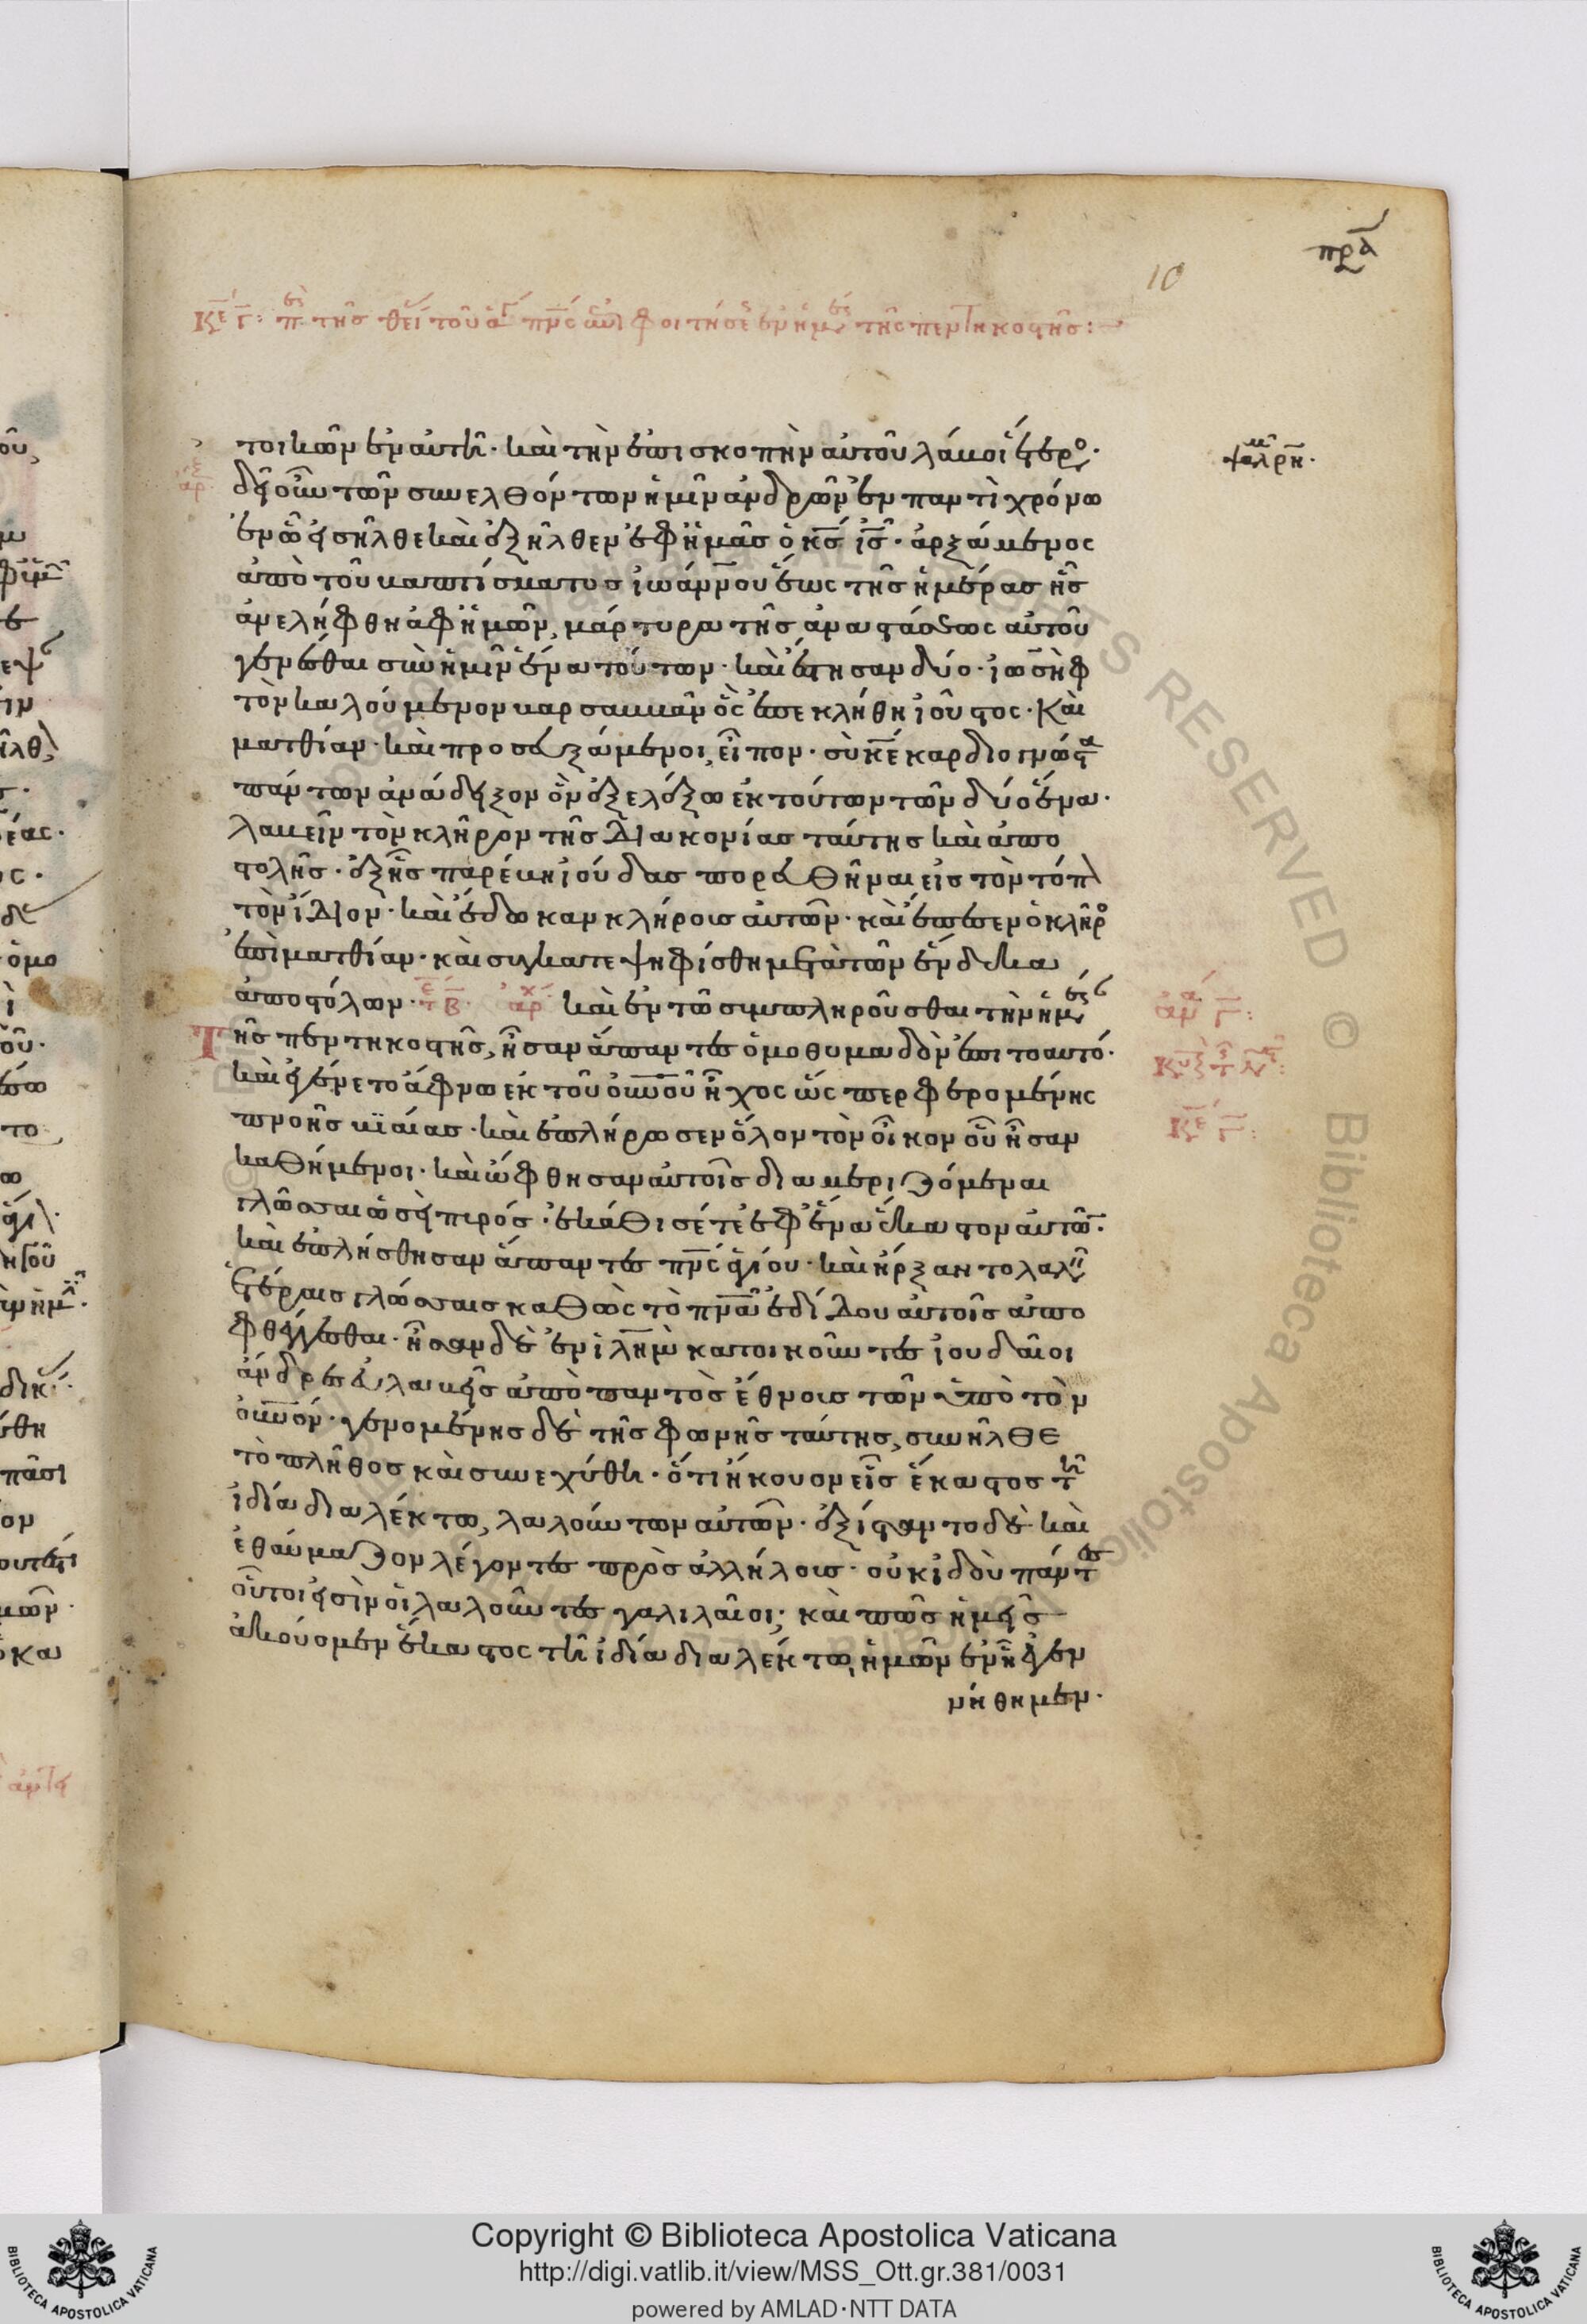 πρα
10
Κε Γ: π της θει του α πνς επιφοιτησε εν ημε της πεντηκοστης:
τοικῶν ἐν αὐτῆ· καὶ τὴν ἐπισκοπὴν αὐτοῦ λάβοι ἕτερο·
ψαλ ρη·
δεῖ οὖν τῶν συνελθόντων ἡμῖν ἀνδρῶν ἐν παντὶ χρόνω
ἐν ὧ εἰσῆλθε καὶ ἐξῆλθεν ἐφ ἡμᾶς ὁ κς ις· ἀρξάμενος
ἀπὸ τοῦ βαπτίσματος ἰωάννου ἕως τῆς ἡμέρας ἧς
ἀνελήφθη ἀφ ἡμῶν, μάρτυρα τῆς ἀναστάσεως αὐτοῦ
γενέσθαι σὺν ἡμῖν ἕνα τούτων· καὶ ἔστησαν δύο· ἰωσὴφ
τὸν καλούμενον βαρσαββᾶν ὃς ἐπεκλήθη ἰοῦστος· Καὶ
ματθίαν· καὶ προσευξάμενοι, εἶπον· σὺ κε καρδιογνῶστα
πάντων ἀνάδειξον ὃν ἐξελέξω ἐκ τούτων τῶν δύο ἕνα·
λαβεῖν τὸν κλῆρον τῆς διακονίας ταύτης καὶ ἀπο
στολῆς· ἐξ ἧς παρέβη ἰούδας πορευθῆναι εἰς τὸν τόπ
τὸν ἴδιον· καὶ ἔδωκαν κλήρους αὐτῶν· καὶ ἔπεσεν ὁ κλῆρο
ἐπὶ ματθίαν· καὶ συγκατεψηφίσθη μετὰ τῶν ἕνδεκα
ἀποστόλων· τε Β· ἀρχ καὶ ἐν τῶ συμπληροῦσθαι τὴν ἡμέ
αν Γ:
Τῆς πεντηκοστῆς, ἦσαν ἅπαντες ὁμοθυμαδὸν ἐπι τοαυτό·
καὶ ἐγένετο ἄφνω ἐκ τοῦ οὐνοῦ ἦχος ὥσπερ φερομένης
πνοῆς βιαίας· καὶ ἐπλήρωσεν ὅλον τὸν οἶκον οὗ ἦσαν
Κε Γ:
καθήμενοι· καὶ ὤφθησαν αὐτοῖς διαμεριζόμεναι
γλῶσσαι ὡσεὶ πυρός· ἐκάθισέ τε ἐφ ἕνα ἕκαστον αὐτῶ·
καὶ ἐπλήσθησαν ἅπαντες πνς ἁγίου· καὶ ἤρξαντο λαλεῖ
ἑτέραις γλώσσαις καθὼς τὸ πνα ἐδίδου αὐτοῖς ἀπο
φθέγεσθαι· ἦσαν δὲ ἐν ἱλημ κατοικοῦντες ἰουδαῖοι
ἄνδρες εὐλαβεῖς ἀπὸ παντὸς ἔθνους τῶν ὑπὸ τὸν
οὐνόν· γενομένης δὲ τῆς φωνῆς ταύτης, συνῆλθε
τὸ πλῆθος καὶ συνεχύθη· ὅτι ἤκουον εἷς ἕκαστος τῆ
ἰδία διαλέκτω, λαλούντων αὐτῶν· ἐξίσταντο δὲ καὶ
ἐθαύμαζον λέγοντες πρὸς ἀλλήλους· οὐκ ἰδοὺ πάντες
οὗτοι εἰσὶν οἱ λαλοῦντες γαλιλαῖοι; καὶ πῶς ἡμεῖς
ἀκούομεν ἕκαστος τῆ ἰδία διαλέκτω ἡμῶν ἐν ἧ ἐγεν
νήθημεν·
Copyright © Biblioteca Apostolica Vaticana
http://digi.vatlib.it/view/MSS_Ott.gr.381/0031
powered by AMLAD·NTT DATA